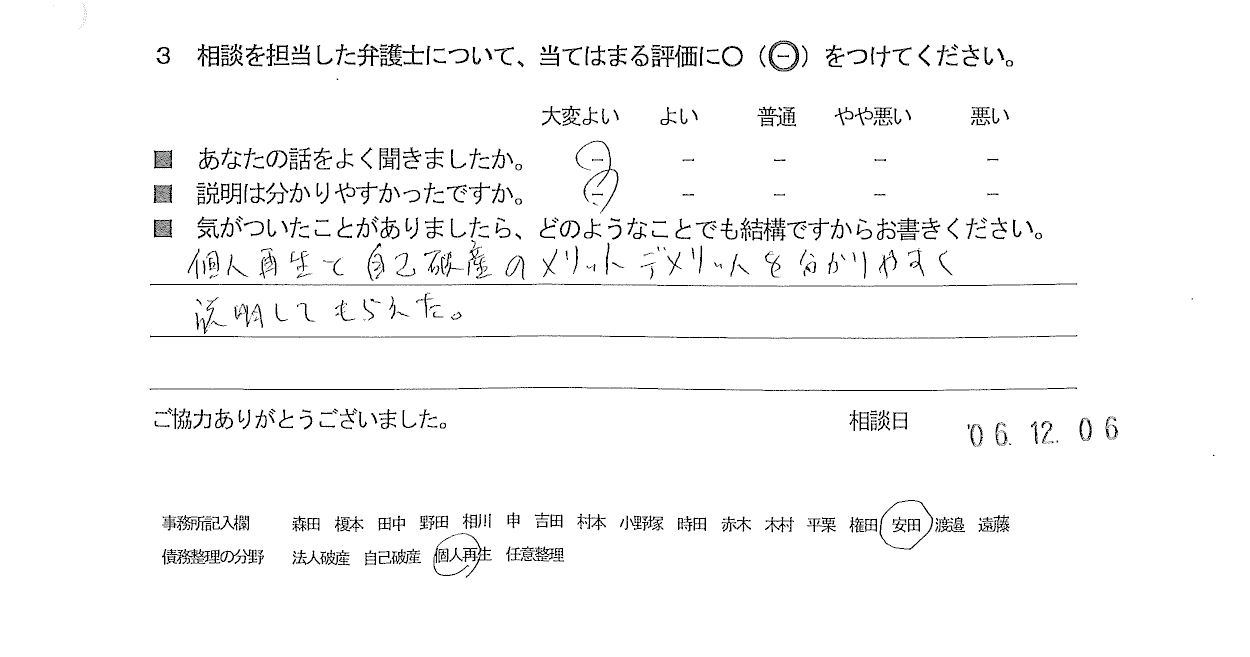 3 相談を担当した弁護士について、当てはまる評価に○（㊀）をつけてください。
大変よい よい 普通 やや悪い 悪い
■ あなたの話をよく聞きましたか。 － － － － －
■ 説明は分かりやすかったですか。 － － － － －
■ 気がついたことがありましたら、どのようなことでも結構ですからお書きください。
個人再生と自己破産のメリットデメリットを分かりやすく
説明してもらえた。
ご協力ありがとうございました。 相談日 '06.12.06
事務所記入欄 森田 榎本 田中 野田 相川 申 吉田 村本 小野塚 時田 赤木 木村 平栗 権田 安田 渡邉 遠藤
債務整理の分野 法人破産 自己破産 個人再生 任意整理